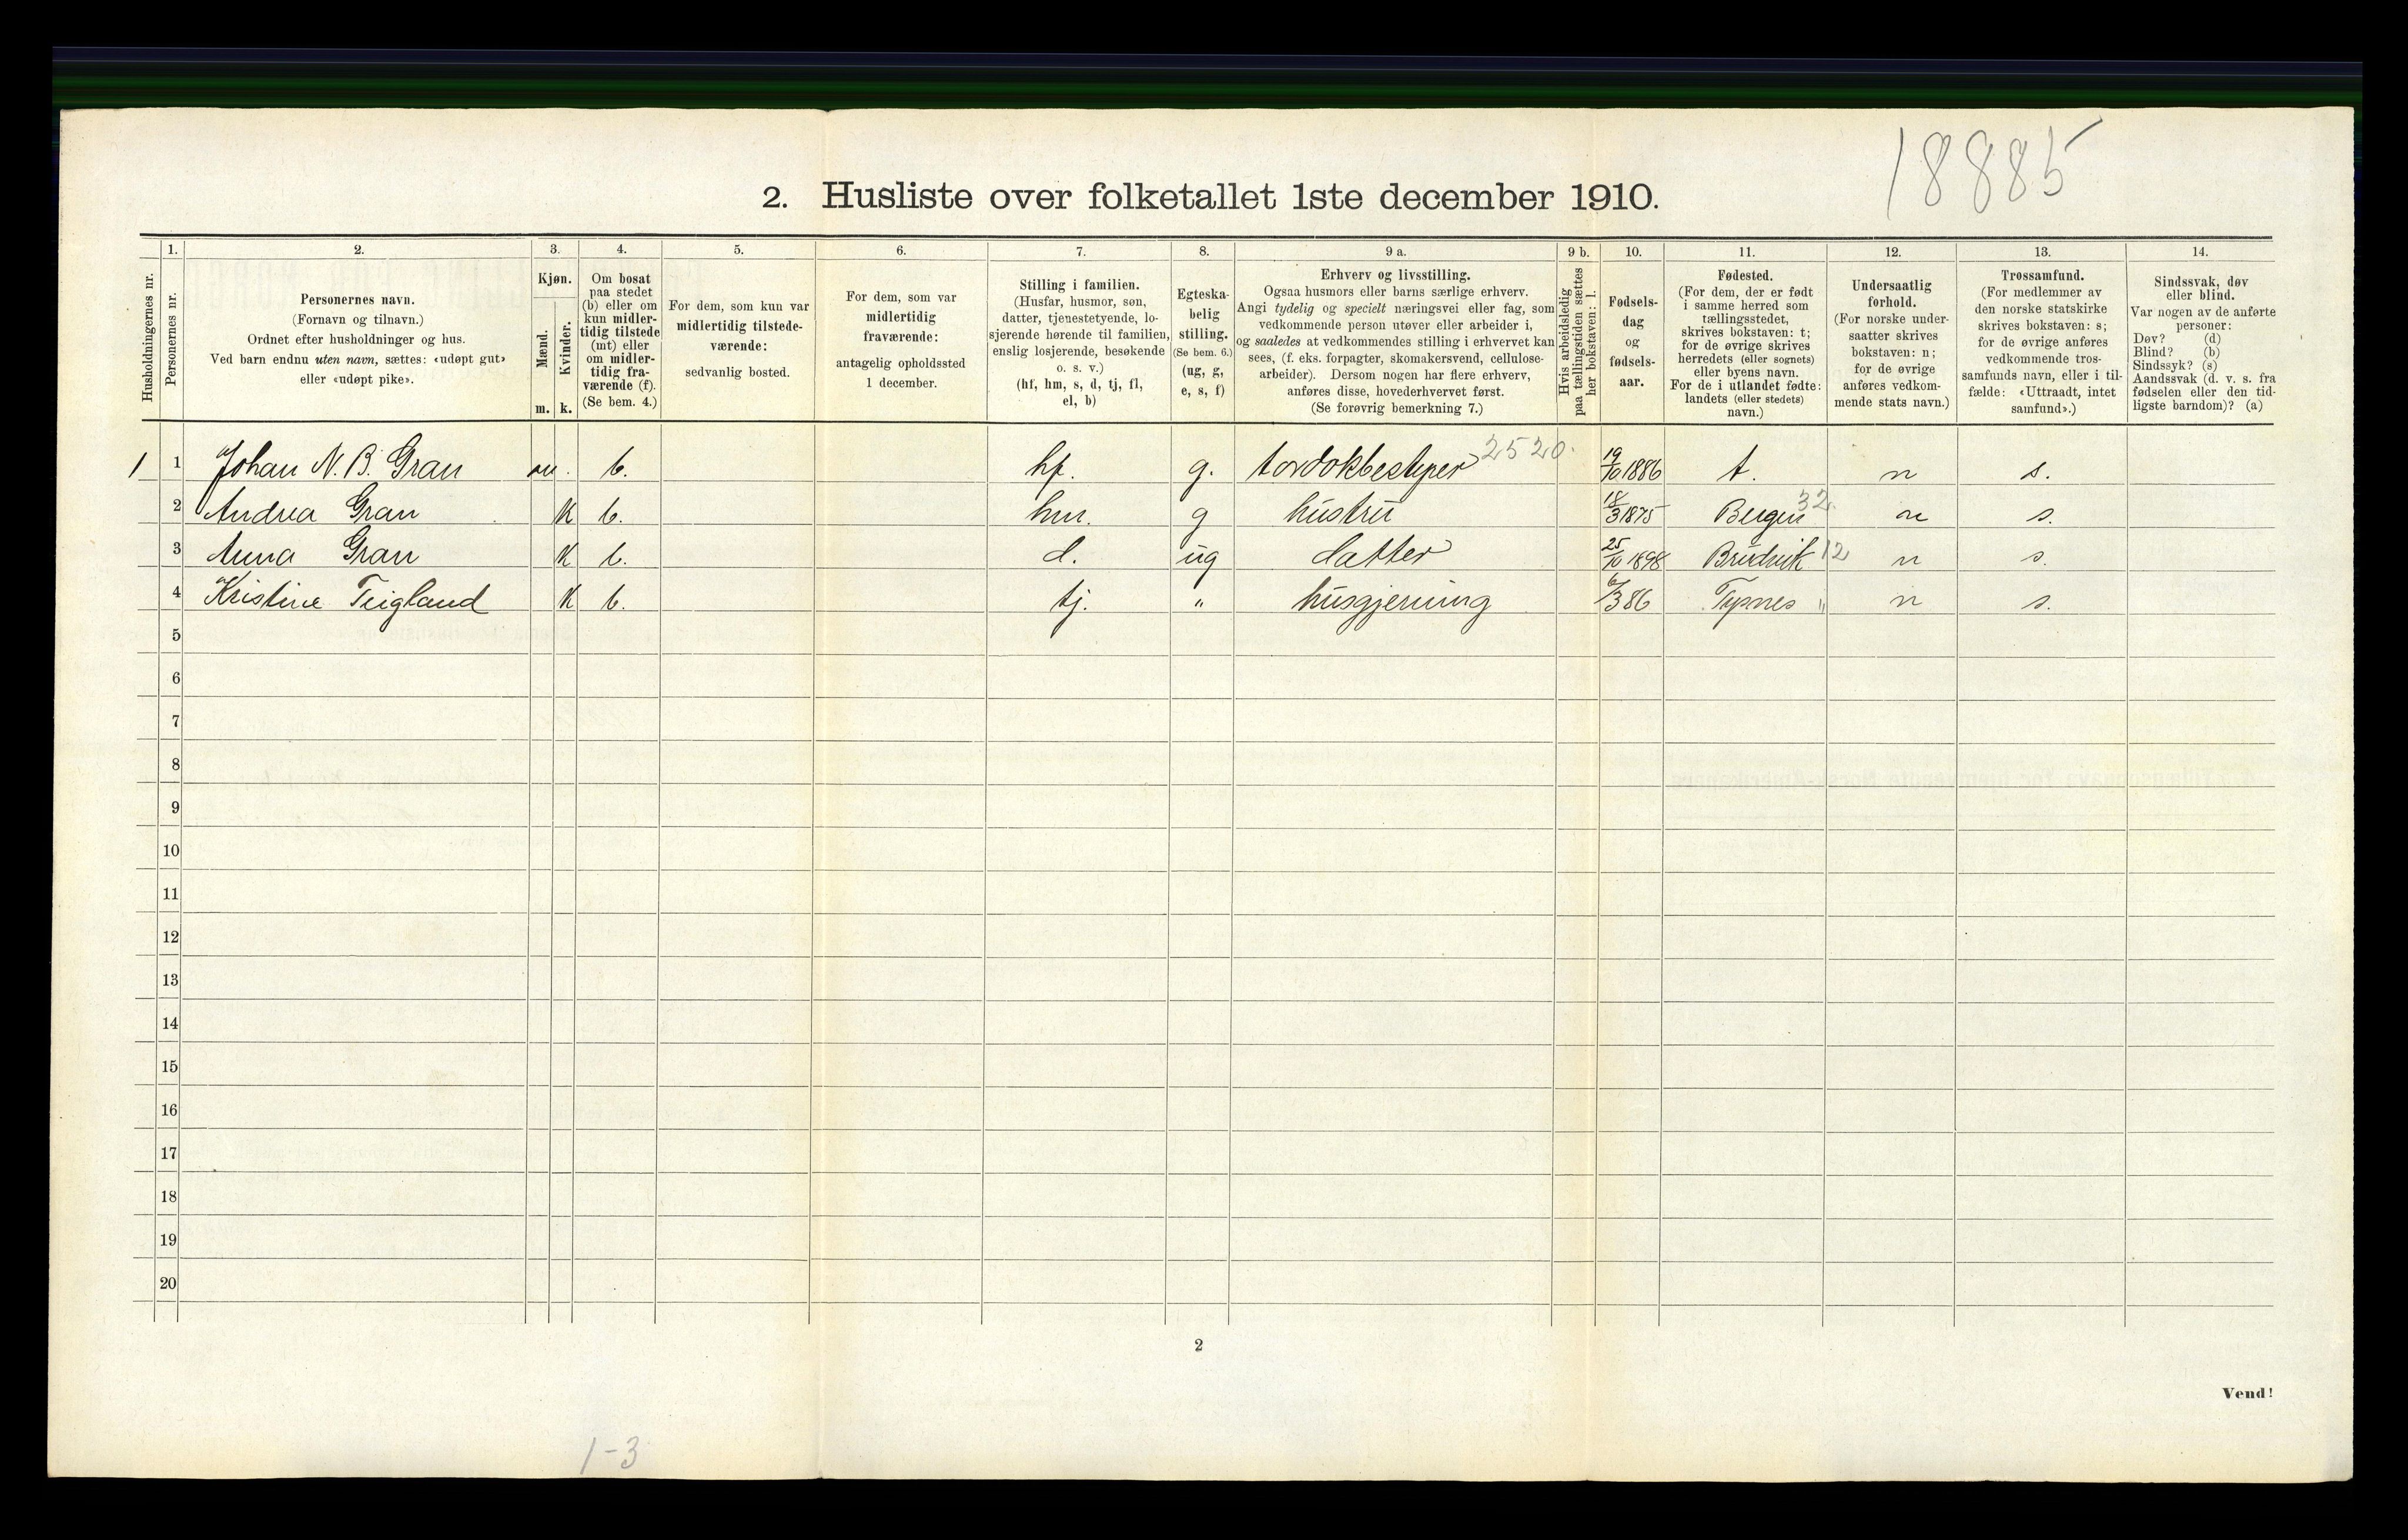 18885
2. Husliste over folketallet 1ste december 1910.
Husholdningernes nr.
1.
Personernes nr.
2.
Personernes navn.
(Fornavn og tilnavn.)
Ordnet efter husholdninger og hus.
Ved barn endnu uten navn, sættes: «udøpt gut»
eller «udøpt pike».
3.
Kjøn.
Mænd.
Kvinder.
m. k.
4.
Om bosat
paa stedet
(b) eller om
kun midler-
tidig tilstede
(mt) eller
om midler-
tidig fra-
værende (f).
(Se bem. 4.)
5.
For dem, som kun var
midlertidig tilstede-
værende:
sedvanlig bosted.
6.
For dem, som var
midlertidig
fraværende:
antagelig opholdssted
1 december.
7.
Stilling i familien.
(Husfar, husmor, søn,
datter, tjenestetyende, lo-
sjerende hørende til familien,
enslig losjerende, besøkende
o. s. v.)
(hf, hm, s, d, tj, fl,
el, b)
8.
Egteska-
belig
stilling.
(Se bem. 6.)
(ug, g,
e, s, f)
9 a.
Erhverv og livsstilling.
Ogsaa husmors eller barns særlige erhverv.
Angi tydelig og specielt næringsvei eller fag, som
vedkommende person utøver eller arbeider i,
og saaledes at vedkommendes stilling i erhvervet kan
sees, (f. eks. forpagter, skomakersvend, cellulose-
arbeider). Dersom nogen har flere erhverv,
anføres disse, hovederhvervet først.
(Se forøvrig bemerkning 7.)
9 b.
Hvis arbeidsledig
paa tællingstiden sættes
her bokstaven: l.
10.
Fødsels-
dag
og
fødsels-
aar.
11.
Fødested.
(For dem, der er født
i samme herred som
tællingsstedet,
skrives bokstaven: t;
for de øvrige skrives
herredets (eller sognets)
eller byens navn.
For de i utlandet fødte:
landets (eller stedets)
navn.)
12.
Undersaatlig
forhold.
(For norske under-
saatter skrives
bokstaven: n;
for de øvrige
anføres vedkom-
mende stats navn.)
13.
Trossamfund.
(For medlemmer av
den norske statskirke
skrives bokstaven: s;
for de øvrige anføres
vedkommende tros-
samfunds navn, eller i til-
fælde: «Uttraadt, intet
samfund».)
14.
Sindssvak, døv
eller blind.
Var nogen av de anførte
personer:
Døv? (d)
Blind? (b)
Sindssyk? (s)
Aandssvak (d. v. s. fra
fødselen eller den tid-
ligste barndom)? (a)
1 1 Johan N. B. Gran m. b. hf. g. 2520. 19/10 1886 t. n s.
2 Andrea Gran k b. hm. g hustru 18/3 1875 Bergen 32. n s.
3 Anna Gran k b. d. ug datter 25/10 1898 Bruvik 12 n s.
4 Kristine Teigland k b. tj. " husgjerning 6/3 86 Tysnes " n s.
5
6
7
8
9
10
11
12
13
14
15
16
17
18
19
20
2
Vend!
1-3